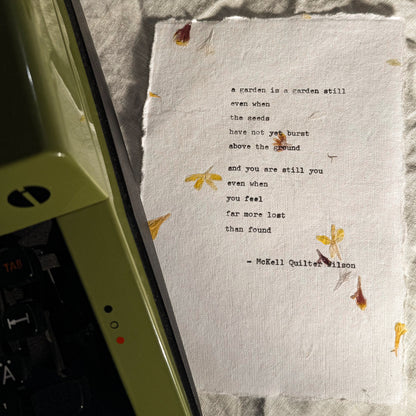 a garden is a garden still
even when
the seeds
have not yet burst
above the ground
and you are still you
even when
you feel
far more lost
than found
- McKell Quilter Wilson
TAB
I
A